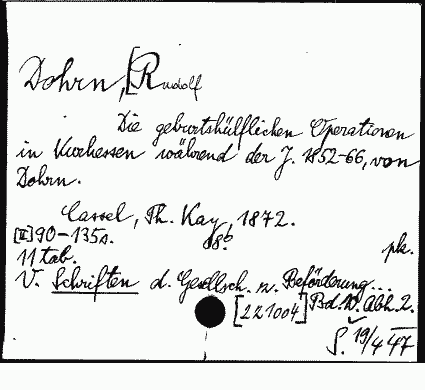 Dohrn, [Rudolf
Die geburtshülflichen Operationen
in Kurhessen während der J. 1852-66, von
Dohrn.
Cassel, Th. Kay, 1872.
[II] 90-135 s. 8º pk.
11 tab.
V. Schriften d. Gesellsch. z. Beförderung...
[221004] Bd. 10. Abh. 2.
S. 19/4 47